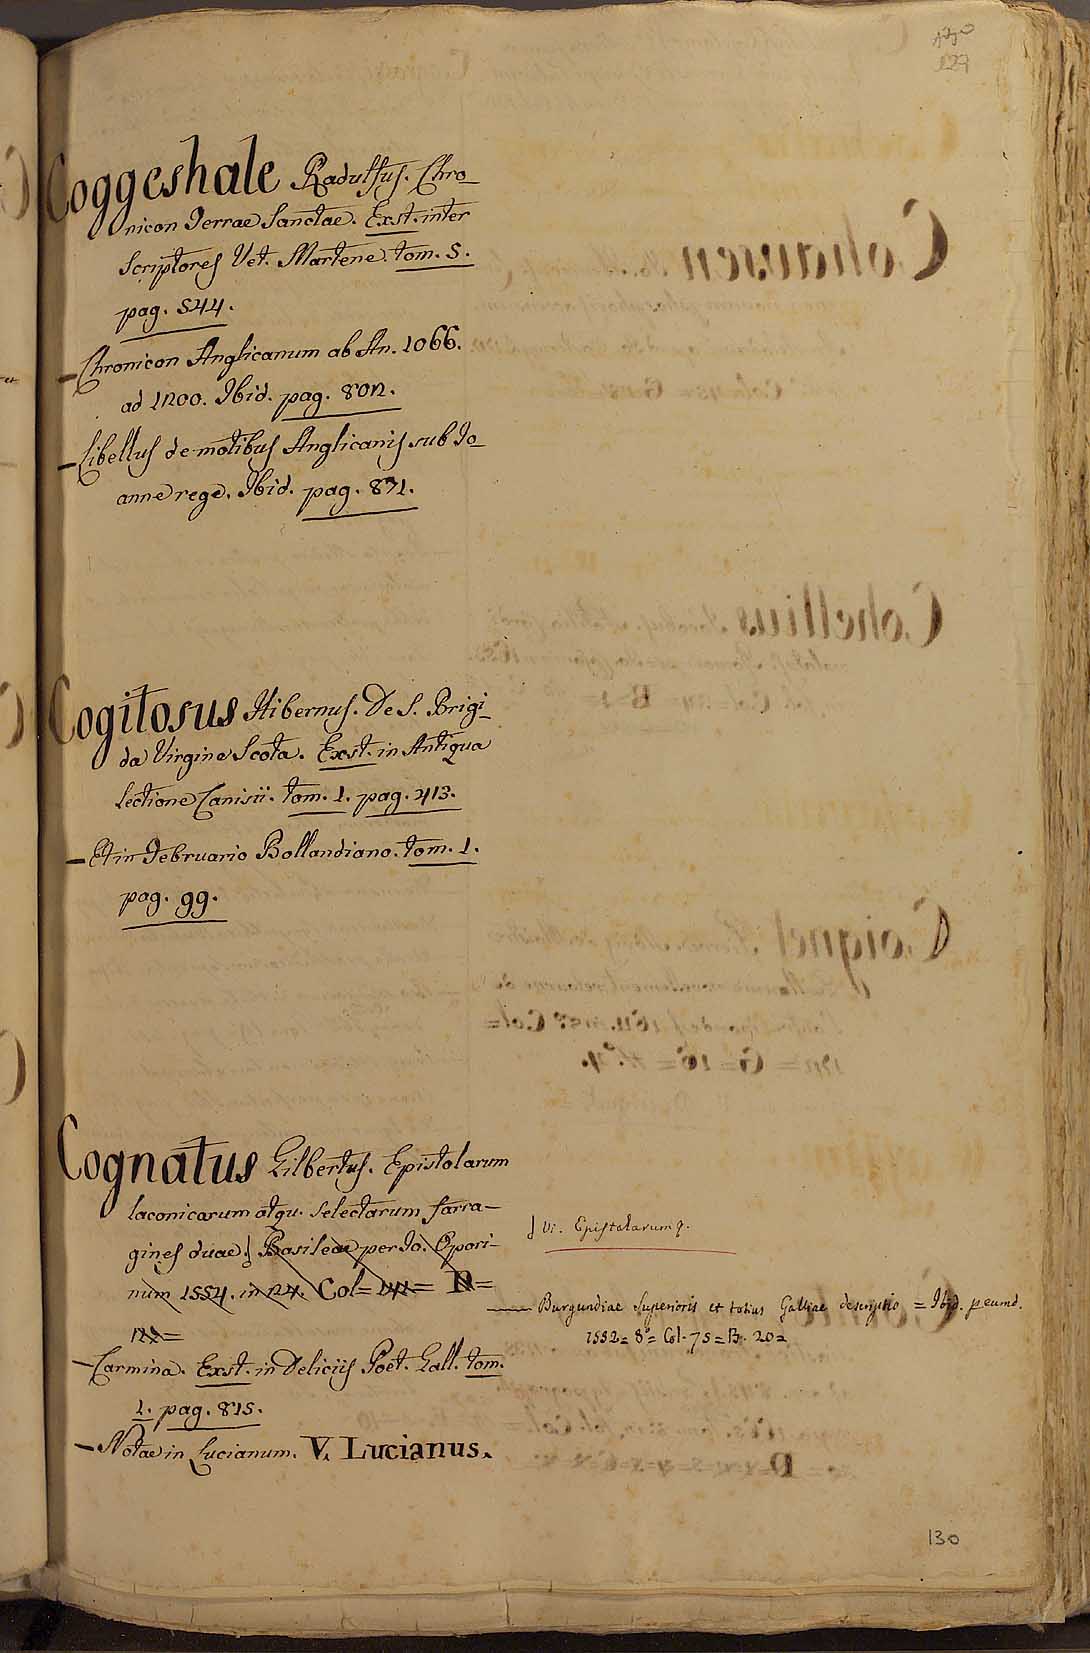 129
Coggeshale Radulfus. Chro_
nicon Terrae Sanctae. Exst. inter
Scriptores Vet. Martene. tom. 5.
pag. 544.
_ Chronicon Anglicanum ab An. 1066.
ad 1200. Ibid. pag. 802.
_ Libellus de motibus Anglicanis sub Jo_
anne rege. Ibid. pag. 871.
Cogitosus Hibernus. De S. Brigi_
da Virgine Scota. Exst. in Antiqua
lectione Canisii. tom. 1. pag. 413.
_ Et in Februario Bollandiano. tom. 1.
pag. 99.
Cognatus Gilbertus. Epistolarum
laconicarum atqu. selectarum farra_
gines duae. Basileae per Jo. Opori_
num 1554. in 12. Col= =
12=
_ Carmina. Exst. in Deliciis Poet. Gall. tom.
1. pag. 815.
_ Notae in Lucianum. V. Lucianus.
Vi. Epistolarum 9.
__ Burgundiae Superioris et totius Galliae descriptio = Ibid. p eumd.
1552= 8°= Col. 75= B. 20=
130